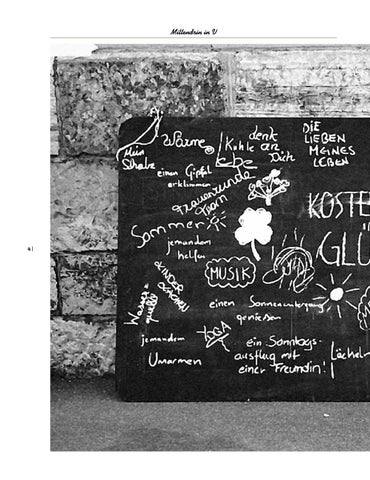 Mittendrin in U
Wärme
Mein
Schatz
Kühle
Liebe
denk
an
Dich
DIE
LIEBEN
MEINES
LEBEN
einen Gipfel
erklimmen
Frauenrunde
Sommer
KOSTE
GLÜ
jemandem
helfen
MUSIK
KINDER
LACHEN
einen Sonnenuntergang
genießen
Wasser =
jemandem
Umarmen
YOGA
ein Sonntags-
ausflug mit
einer Freundin!
Lächel